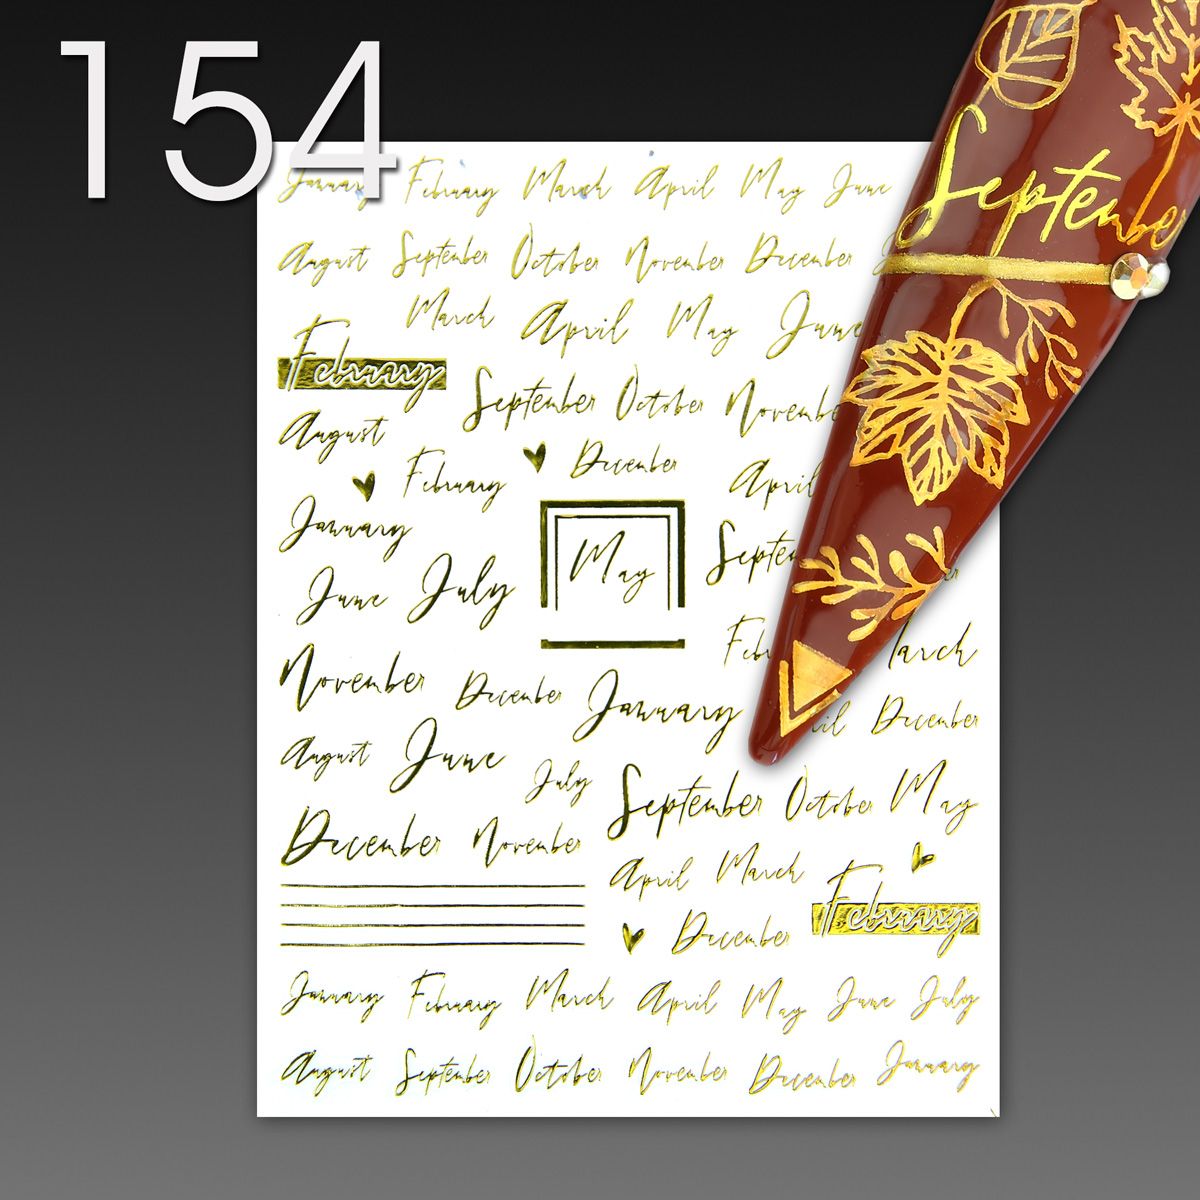 154
January February March April May June
August September October November December
March April May June
February
September October November
August
December
February
April
January
May
September
June July
February March
November December January
April December
August June
July
September October May
December November
April March
February
December
January February March April May June July
August September October November December January
September